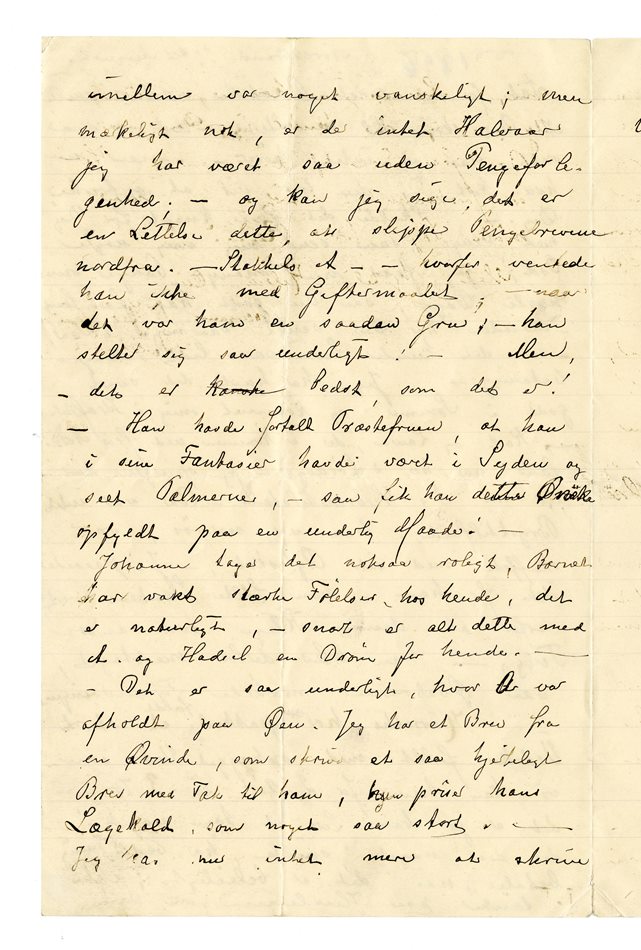 imellem var noget vanskeligt; men
mækeligt nok, er de intet Halvaar
jeg har været saa uden Pengeforle-
genhed. — og kan jeg sige, det er
en Lettelse dette, at slippe Pengebrevene
nordfra. — Stakkels A — — hvorfor ventede
han ikke med Giftermaalet, — naar
det var ham en saadan Gru; — han
stelte sig saa underligt! — Men,
— det er kanske bedst, som det er!
— Han havde fortalt Præstefruen, at han
i sine Fantasier havde været i Syden og
seet Palmerne, — saa fik han dette Ønske
opfyldt paa en underlig Maade! —
Johanne tager det noksaa roligt, Barnet
har vakt stærke Følelser hos hende, det
er naturligt, — snart er alt dette med
A. og Hadsel en Drøm for hende. —
— Det er saa underligt, hvor A var
afholdt paa Øen. Jeg har et Brev fra
en Qvinde, som skrev et saa hjerteligt
Brev med Tak til ham, hun priser hans
Lægekald, som noget saa stort. —
Jeg har nu intet mere at skrive